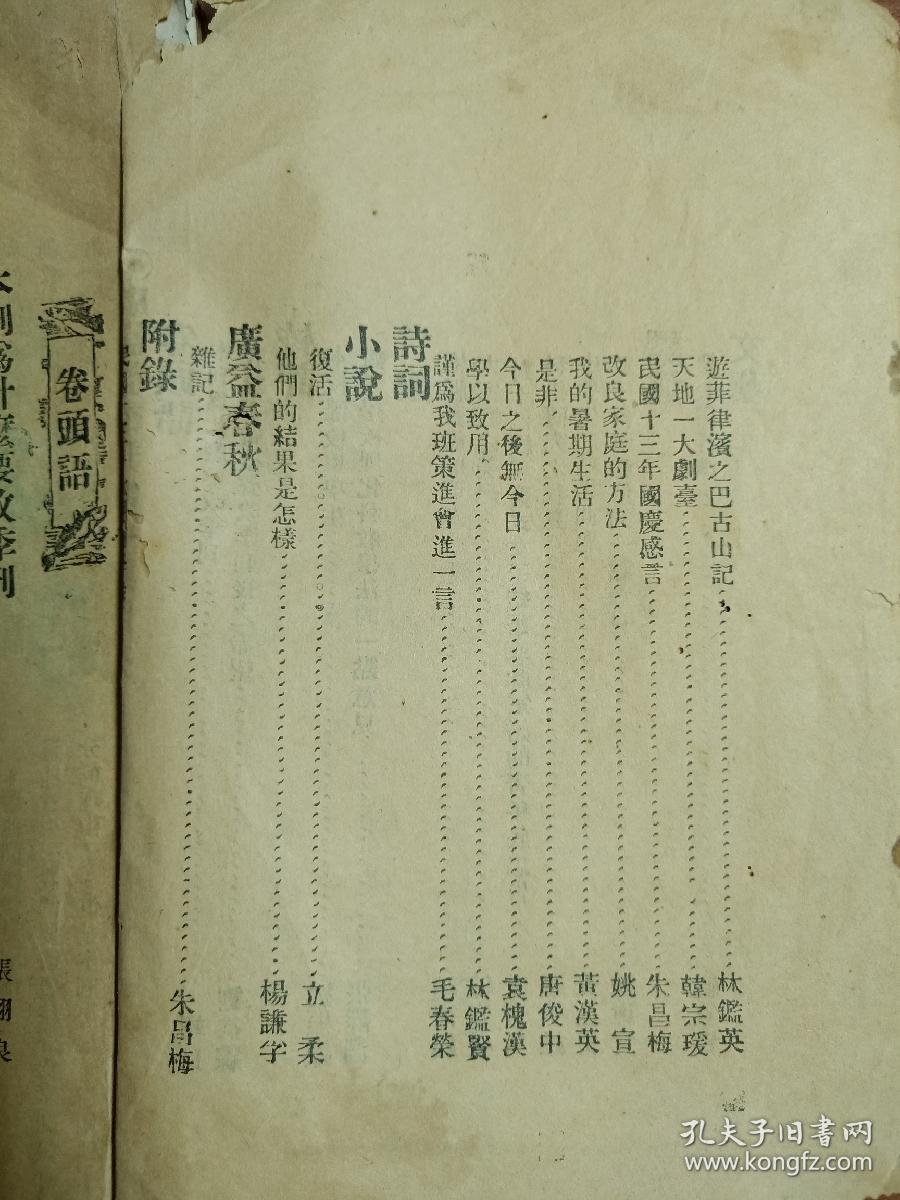 遊菲律濱之巴古山記 林鑑英
天地一大劇臺 韓宗瑗
民國十三年國慶感言 朱昌梅
改良家庭的方法 姚宣
我的暑期生活 黃漢英
是非 唐俊中
今日之後無今日 袁槐漢
學以致用 林鑑賢
謹爲我班策進會進一言 毛春榮
詩詞
小說
復活 立柔
他們的結果是怎樣 楊謙字
廣益春秋
雜記 朱昌梅
附錄
卷頭語
孔夫子旧书网
www.kongfz.com